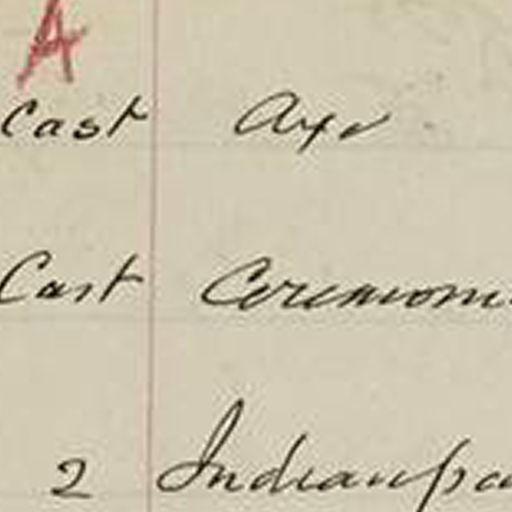 A
Cast Axe
Cast Ceremoni
2 Indian pa